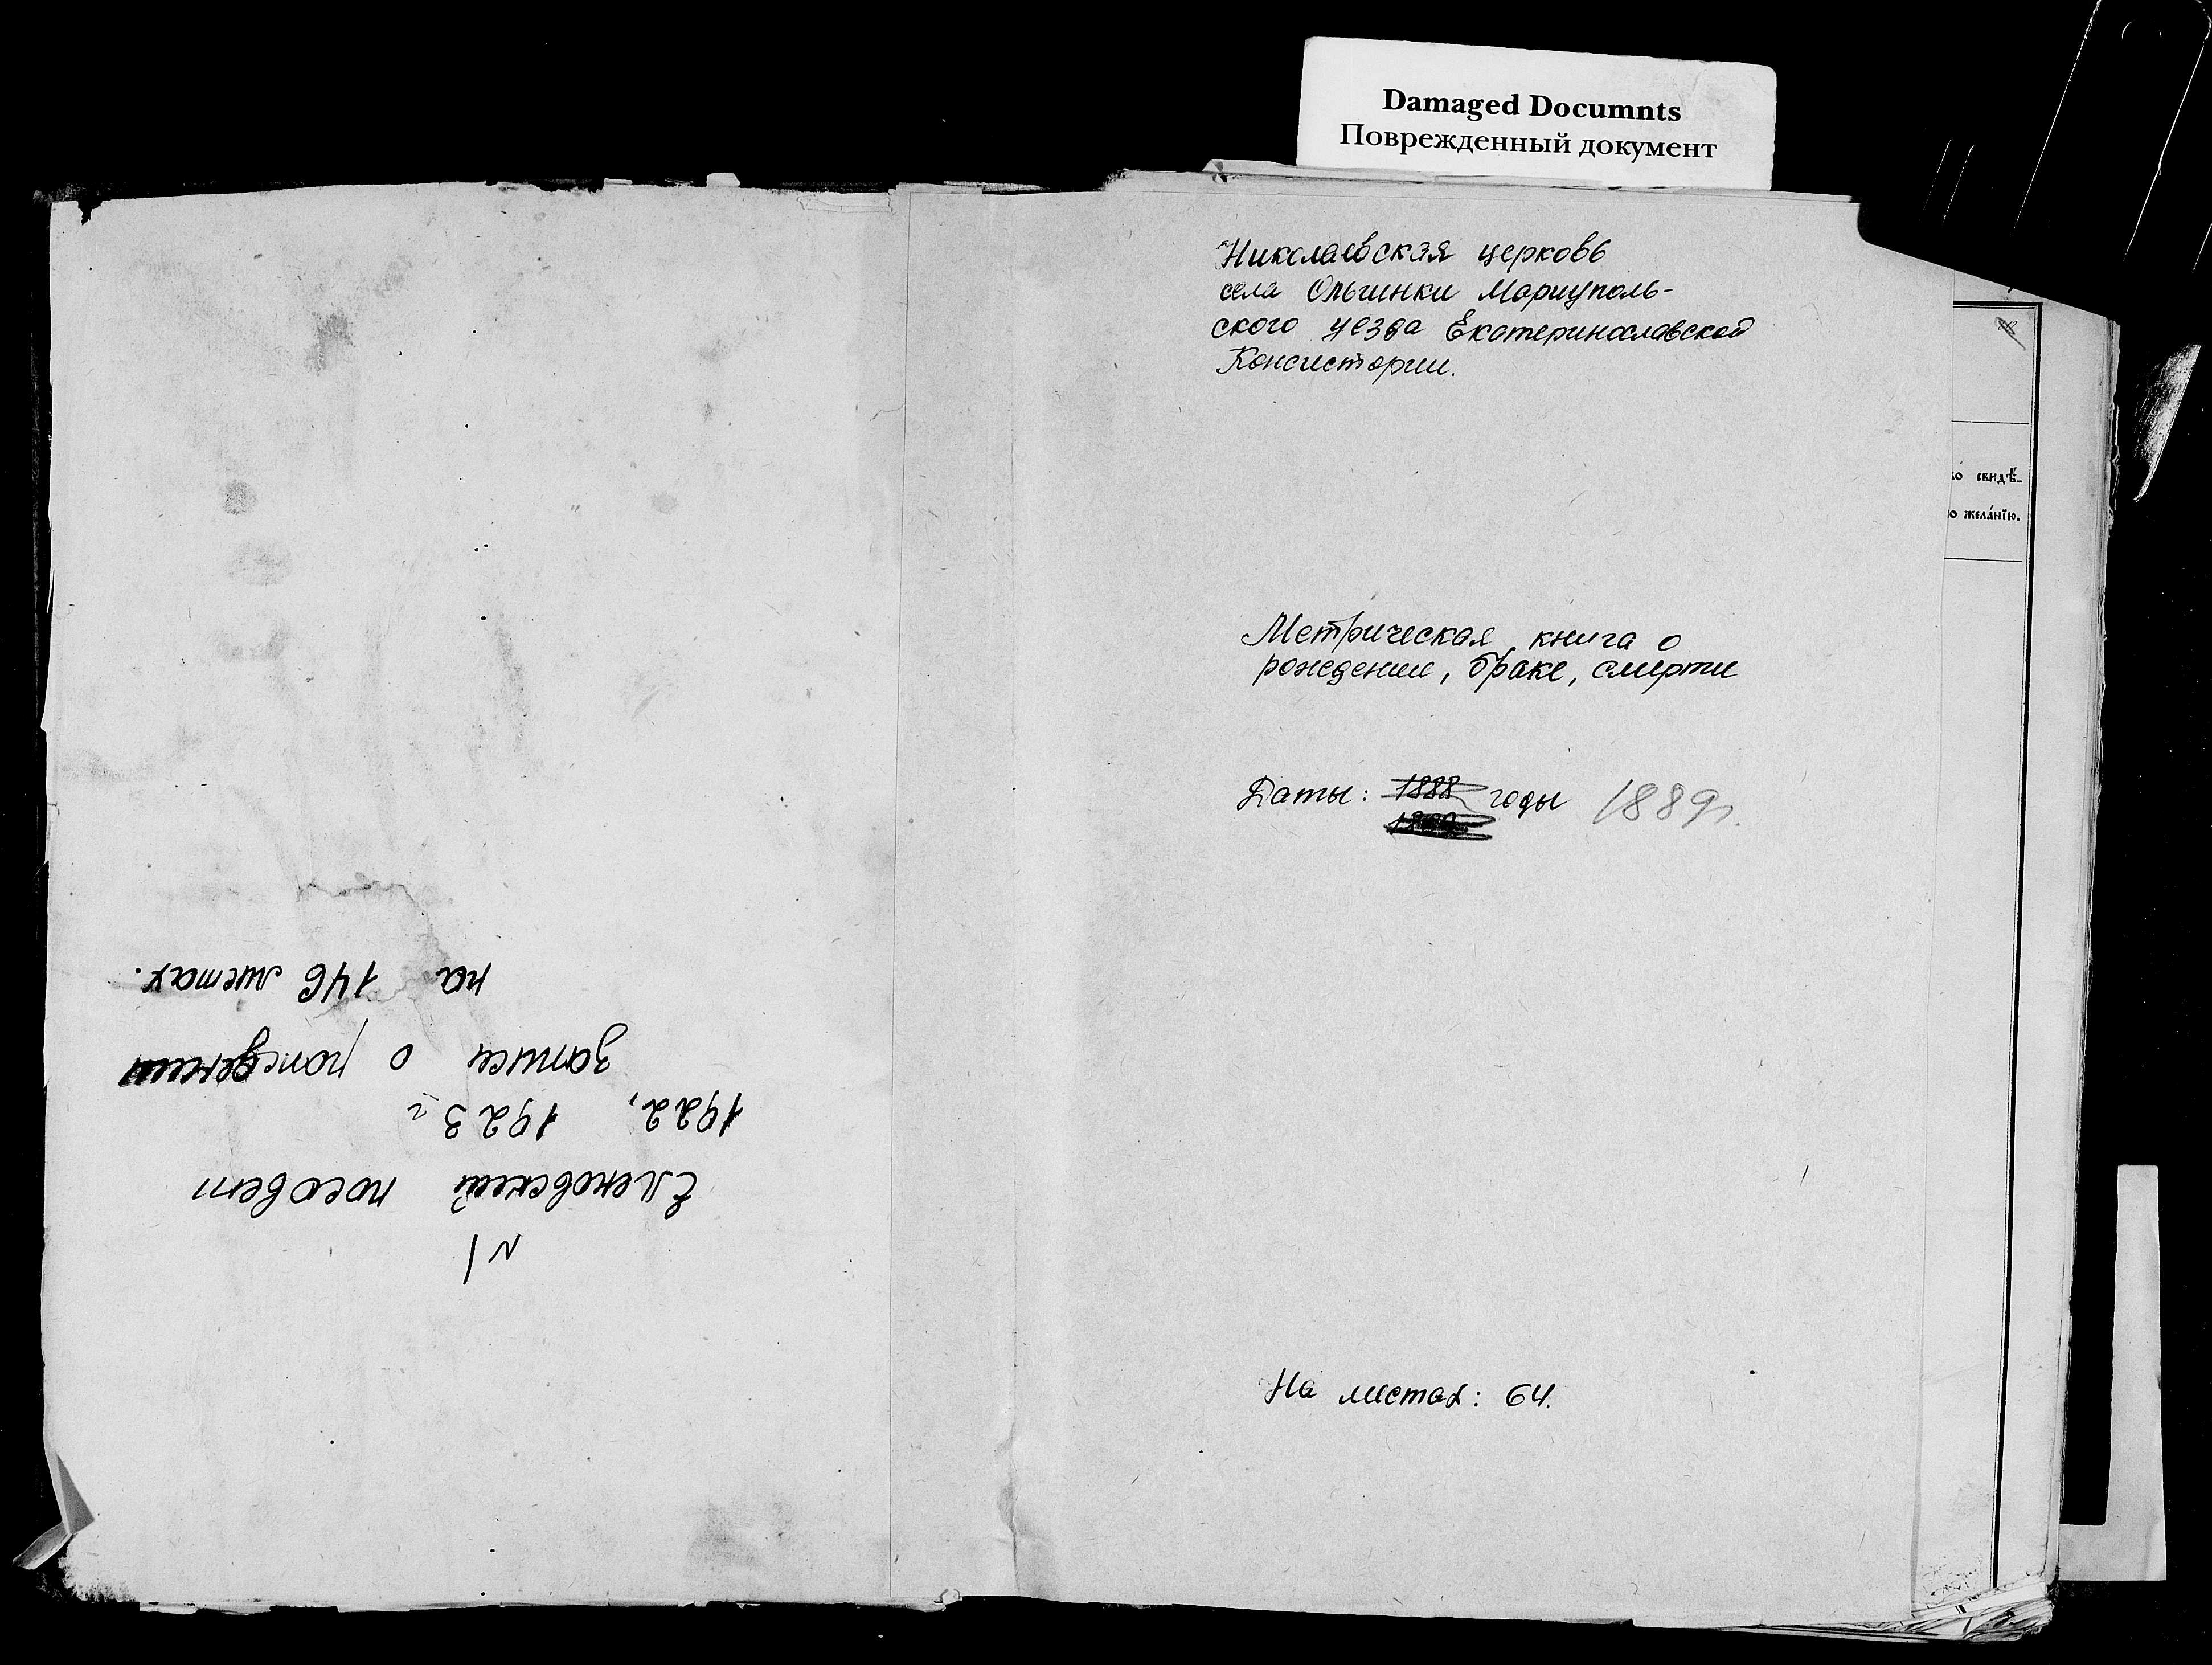 Damaged Documnts
Поврежденный документ
Николаевская церковь
села Ольгинки Мариуполь-
ского уезда Екатеринославской
Консистории.
Метрическая книга о
рождении, браке, смерти
Даты: 1888 годы 1889г.
На листах: 64.
свидѣ-
о желáнїю.
№1
Еленовский посовет
1922, 1923 г
записи о рождении
на 146 листах.